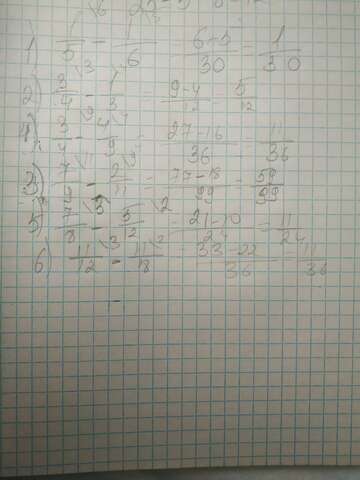 1) /5 - /6 = 6-5/30 = 1/30
2) 3/4 - 1/3 = 9-4/12 = 5/12
4) 3/4 - 4/9 = 27-16/36 = 11/36
3) 7/9 - 2/11 = 77-18/99 = 59/99
5) 7/8 - 5/12 = 21-10/24 = 11/24
6) 11/12 - 11/18 = 33-22/36 = 11/36